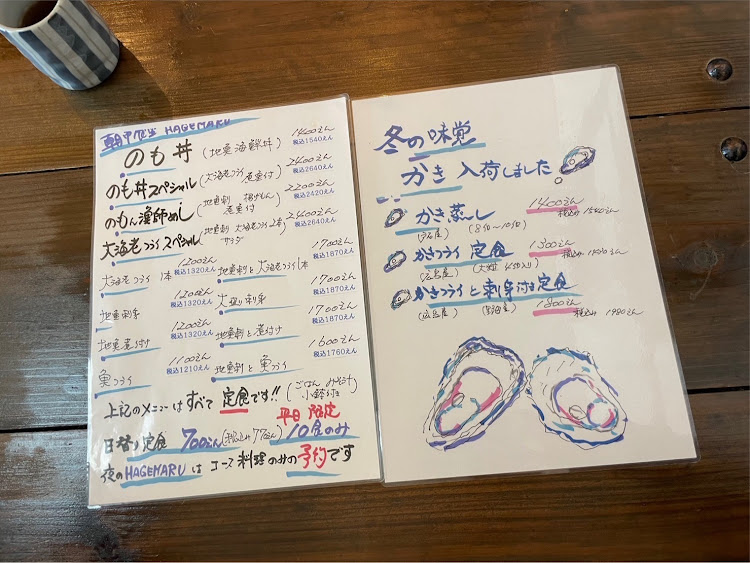 HAGEMARU
のも丼 (地魚海鮮丼) 1400えん
税込1540えん
のも丼スペシャル (大海老フライ 煮魚付) 2400えん
税込2640えん
のもん漁師めし 2200えん
税込2420えん
大海老フライスペシャル 2400えん
税込2640えん
大海老フライ 1本 1200えん
税込1320えん
地魚刺と大海老フライ1本 1700えん
税込1870えん
地魚刺身 1200えん
税込1320えん
大盛り刺身 1700えん
税込1870えん
地魚煮付け 1200えん
税込1320えん
地魚刺と煮付け 1700えん
税込1870えん
魚フライ 1100えん
税込1210えん
地魚刺と魚フライ 1600えん
税込1760えん
上記のメニューはすべて定食です!! (ごはん みそ汁 小鉢付き)
平日限定
日替り定食 700えん(税込み770えん) 10食のみ
夜のHAGEMARUはコース料理のみの予約です
冬の味覚
かき 入荷しました
かき蒸し 1400えん
税込み 1540えん
かきフライ定食 1300えん
(広島産)
かきフライと刺身付き定食
(広島産) 1800えん 税込み 1980えん